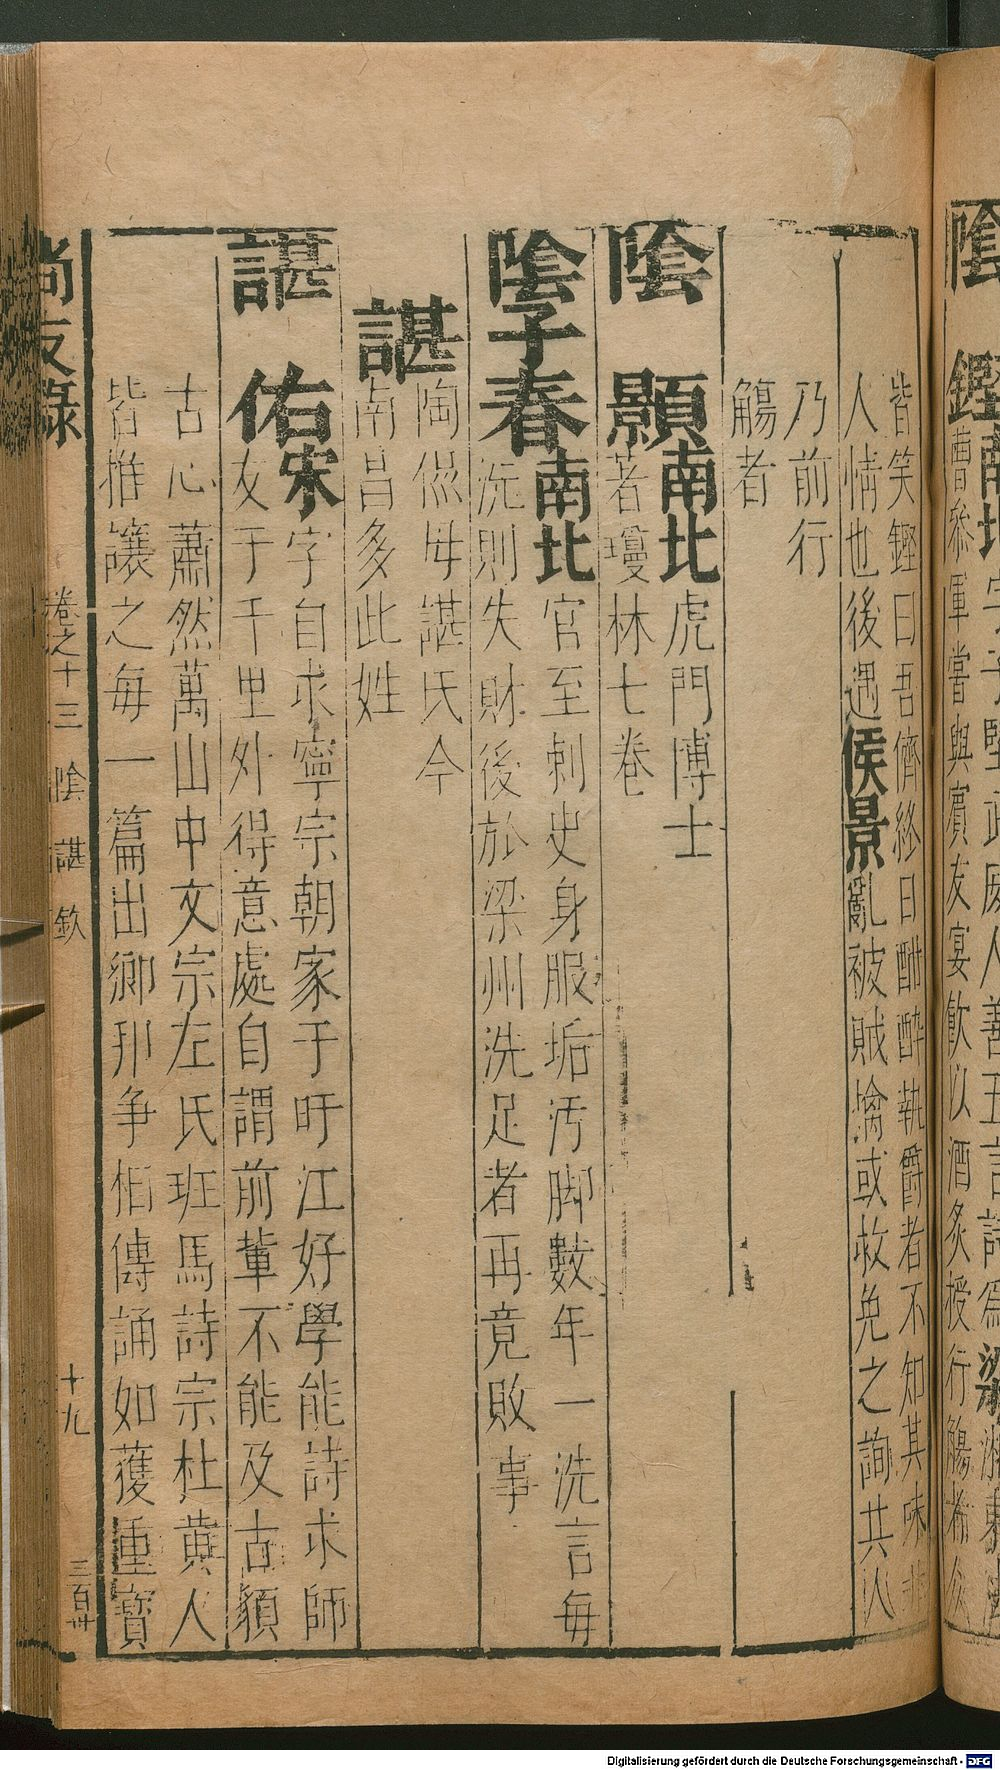 陰 鏗南北字子堅武威人善五言詩爲梁
曹參軍嘗與賓友宴飲以酒炙授行觴
皆笑鏗曰吾儕終日酣醉執爵者不知其味非
人情也後遇侯景亂被賊擒或救免之詢共人
乃前行
觴者
陰 顥南北虎門博士
著瓊林七卷
陰子春南北官至刺史身服垢汚脚數年一洗言每
洗則失財後於梁州洗足者再竟敗事
諶
陶侃母諶氏今
南昌多此姓
諶 佑宋字自求寧宗朝家于旴江好學能詩求師
友于千里外得意處自謂前輩不能及古貌
古心蕭然萬山中文宗左氏班馬詩宗杜黄人
皆推讓之每一篇出鄉邦争相傳誦如獲重寶
尚友錄 卷之十三 陰 諶 欽 十九 三百卅
Digitalisierung gefördert durch die Deutsche Forschungsgemeinschaft - DFG